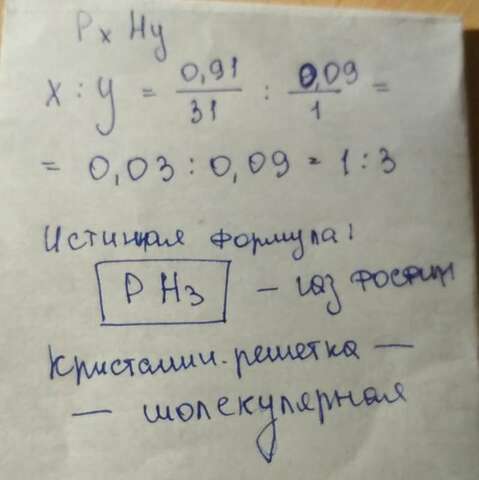 Px Hy
x : y = 0,91/31 : 0,09/1 =
= 0,03 : 0,09 = 1 : 3
Истинная формула:
PH3 – газ фосфин
Кристаллич. решетка –
– молекулярная